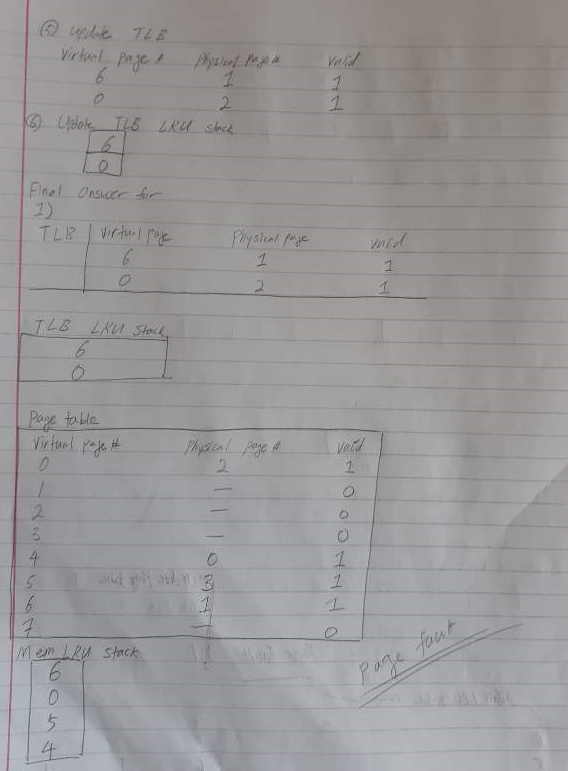 ⑤ update TLB
Virtual page # Physical Page # Valid
6 1 1
0 2 1
⑥ Update TLB LRU stack
6
0
Final Answer for
1)
TLB Virtual page Physical page Valid
6 1 1
0 2 1
TLB LRU Stack
6
0
Page table
Virtual page # Physical page # Valid
0 2 1
1 — 0
2 — 0
3 — 0
4 0 1
5 3 1
6 1 1
7 — 0
Mem LRU Stack
6
0
5
4
page fault